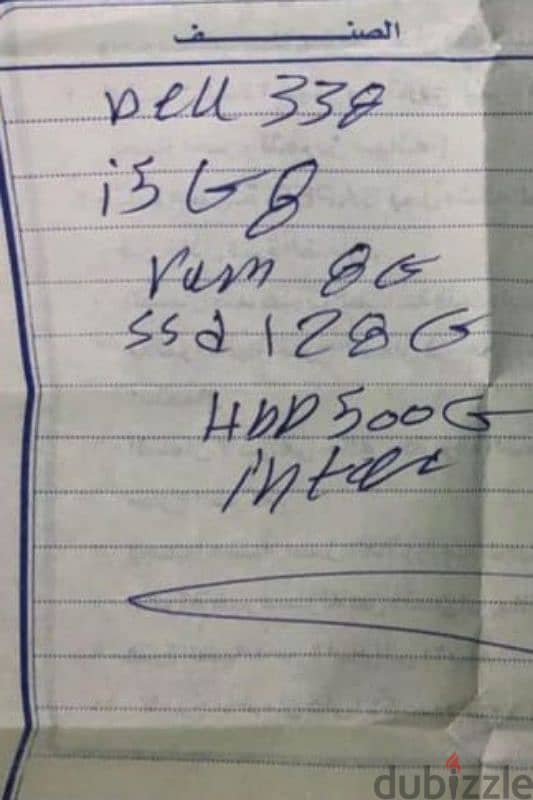 الصنف
Dell 338
i5 G8
ram 8G
ssd 128G
HDD 500G
intel
dubizzle